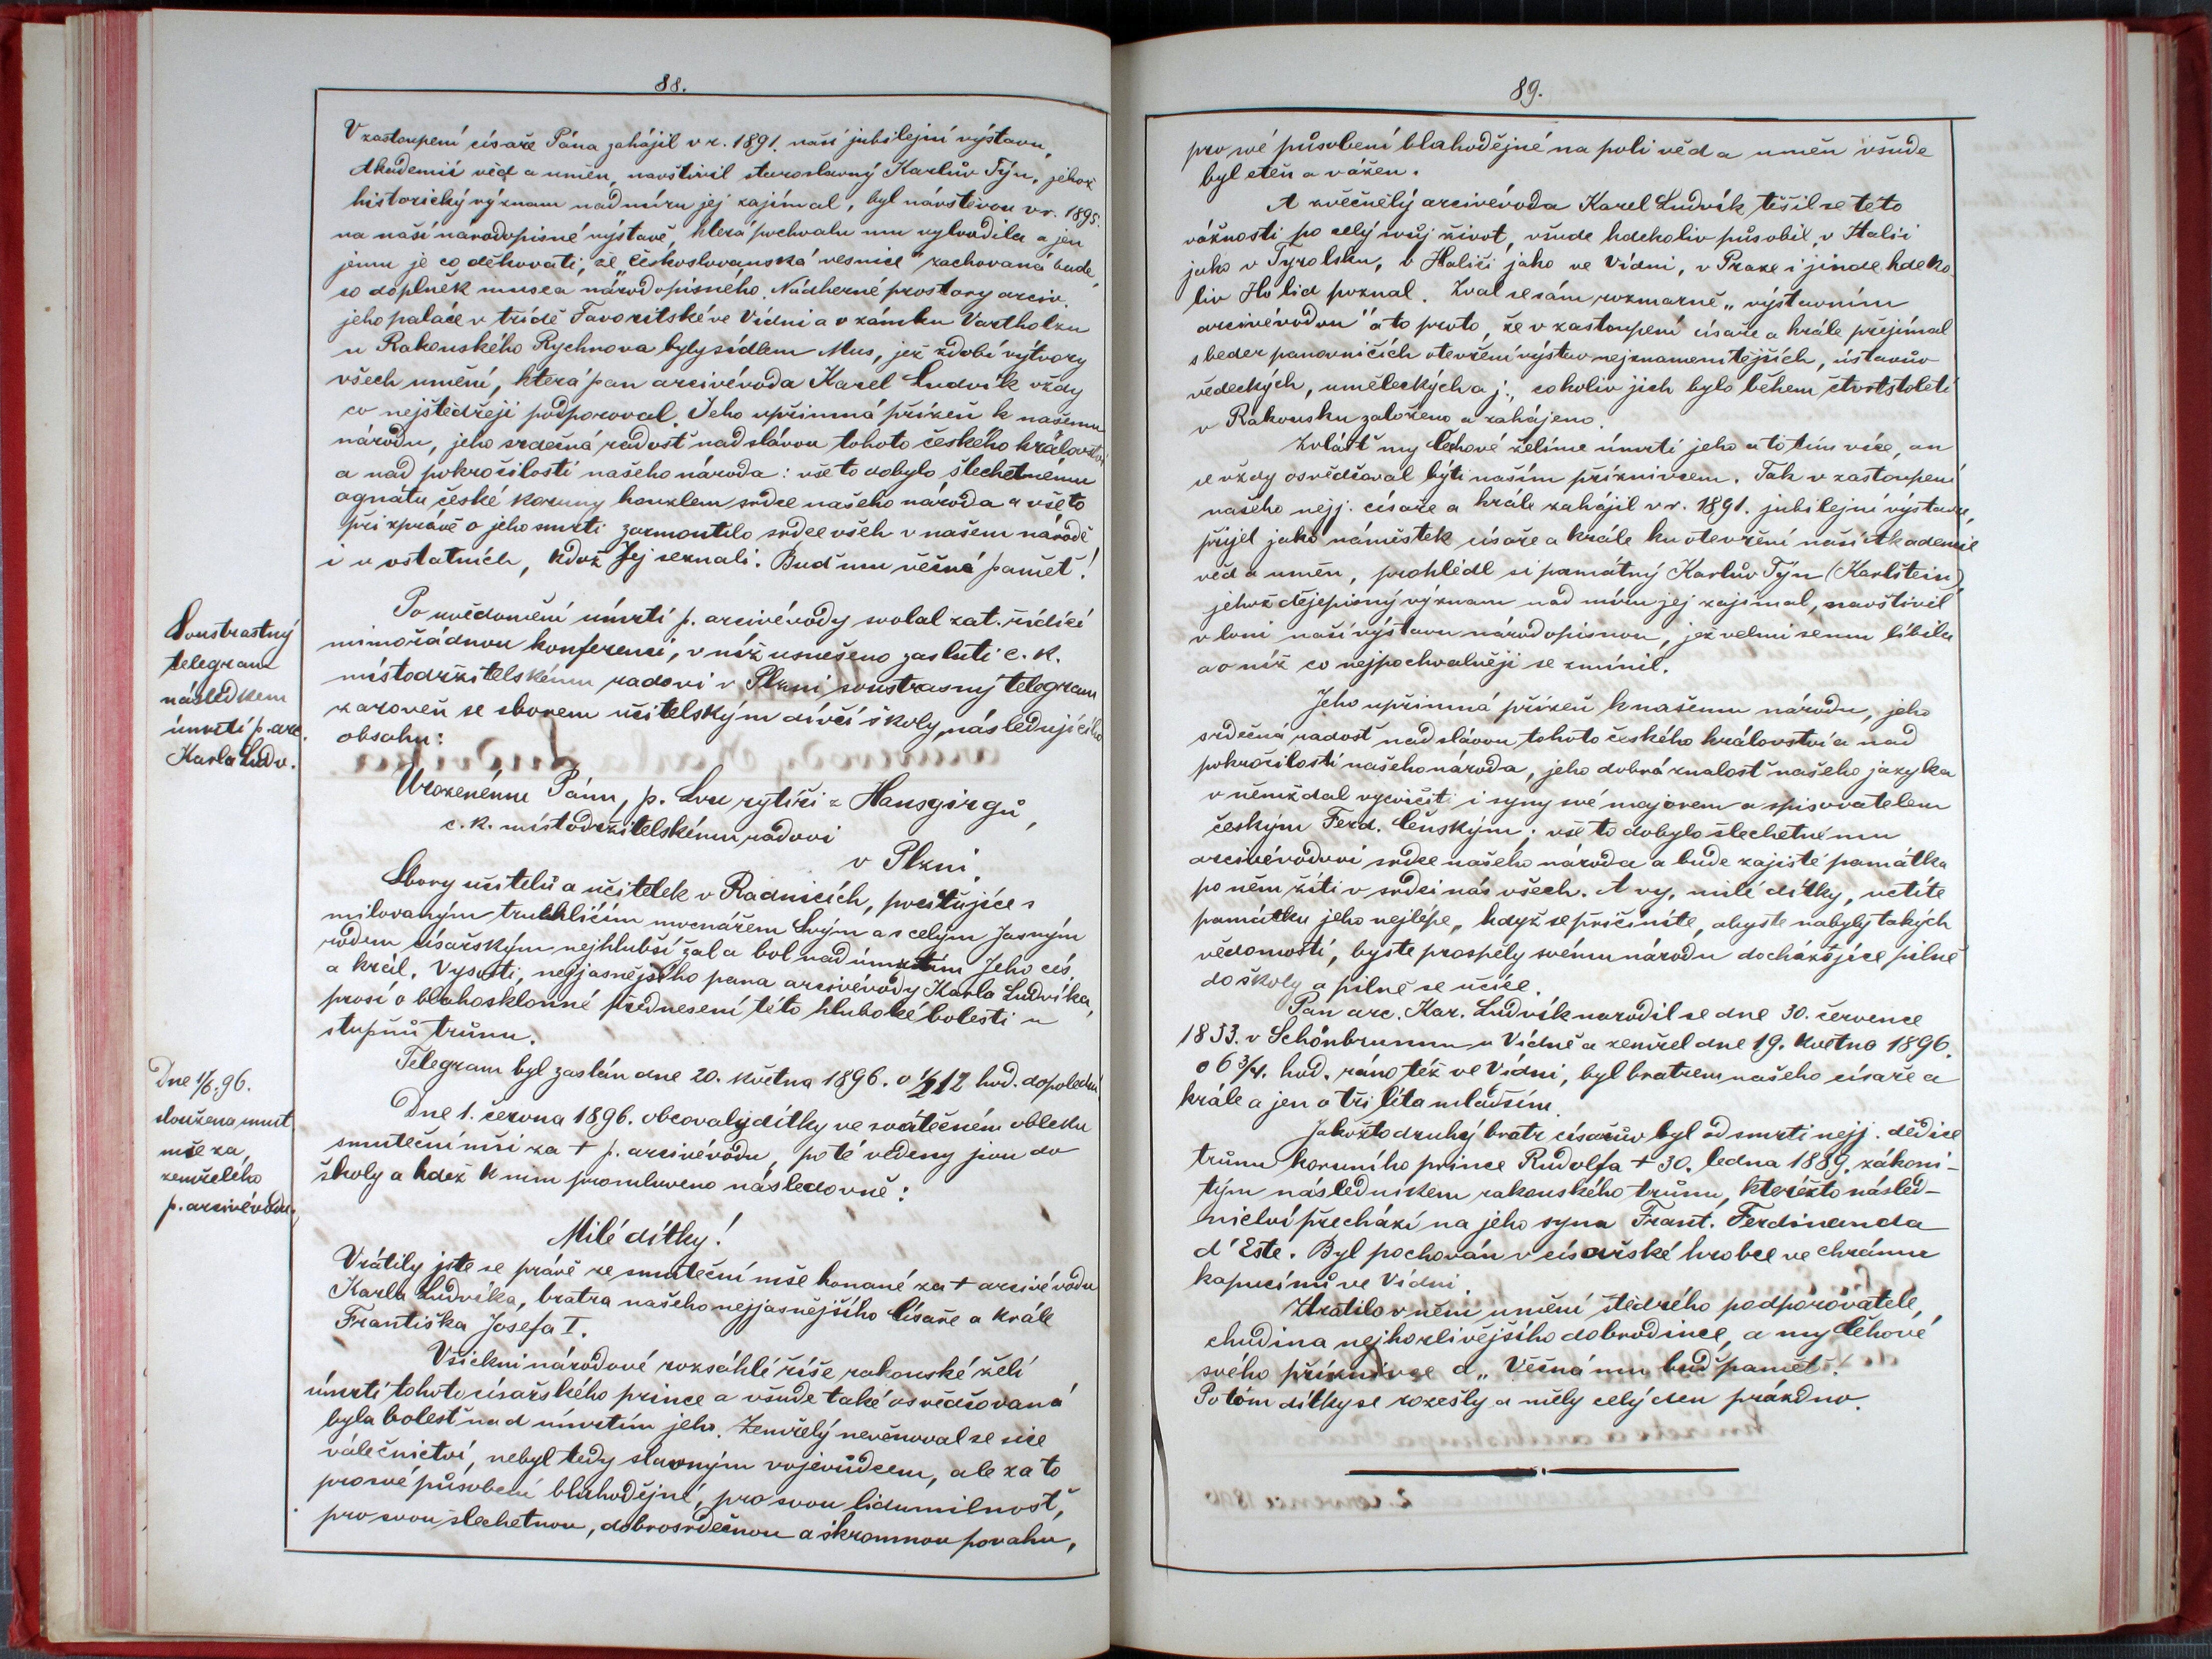 88.
V zastoupení císaře Pána zahájil v r. 1891. naší jubilejní výstavu,
Akademii věd a umění, navštívil staroslavný Karlův Týn, jehož
historický význam nad míru jej zajímal, byl návštěvou v r. 1895.
na naší národopisné výstavě, která pochvalu mu vyloudila a jen
jemu je co děkovati, že „českoslovanská vesnice" zachovaná bude,
co doplněk musea národopisného. Nádherné prostory arciv.
jeho paláce v třídě Favoritské ve Vídni a v zámku Vartholzu
u Rakouského Rychnova byly sídlem Mus, jež zdobí výtvory
všech umění, která pan arcivévoda Karel Ludvík vždy
co nejštědřeji podporoval. Jeho upřímná přízeň k našemu
národu, jeho srdečná radost nad slávou tohoto českého království
a nad pokročilostí našeho národa: vše to dobylo šlechetnému
agnátu české koruny kouzlem srdce našeho národa a vše to
při zprávě o jeho smrti zarmoutilo srdce všech v našem národě
i u ostatních, kdož Jej seznali. Buď mu věčná paměť!
Soustrastný
telegram
následkem
úmrtí p. arc.
Karla Ludv.
Po zvědomění úmrtí p. arcivévody svolal zat. řídící
mimořádnou konferenci, v níž usnešeno zaslati c. k.
místodržitelskému radovi v Plzni soustrasný telegram
zároveň se sborem učitelským dívčí školy, následujícího
obsahu:
Urozenému Pánu, p. Lvu rytíři z Hansgirgů,
c. k. místodržitelskému radovi
v Plzni.
Sbory učitelů a učitelek v Radnicích, pociťujíce s
milovaným truchlícím mocnářem Svým a s celým Jasným
rodem císařským nejhlubší žal a bol nad úmrtím Jeho cís.
a král. Vysosti, nejjasnějšího pana arcivévody Karla Ludvíka,
prosí o blahosklonné přednesení této hluboké bolesti u
stupňů trůnu.
Telegram byl zaslán dne 20. května 1896. o ½12 hod. dopolední.
Dne 1/6. 96.
sloužena smut.
mše za
zemřelého
p. arcivévodu.
Dne 1. června 1896. obcovaly dítky ve svátečném obleku
smuteční mši za + p. arcivévodu, poté vedeny jsou do
školy a kdež k nim promluveno následovně:
Milé dítky!
Vrátily jste se právě ze smuteční mše konané za + arcivévodu
Karla Ludvíka, bratra našeho nejjasnějšího Císaře a krále
Františka Josefa I.
Všickni národové rozsáhlé říše rakouské želí
úmrtí tohoto císařského prince a všude také osvědčovaná
byla bolest nad úmrtím jeho. Zemřelý nevěnoval se sice
válečnictví, nebyl tedy slavným vojevůdcem, ale za to
pro své působení blahodějné, pro svou lidumilnost,
pro svou šlechetnou, dobrosrdečnou a skromnou povahu,
89.
pro své působení blahodějné na poli věd a uměn všude
byl ctěn a vážen.
A zvěčnělý arcivévoda Karel Ludvík těšil se této
vážnosti po celý svůj život, všude kdekoliv působil, v Italii
jako v Tyrolsku, v Haliči jako ve Vídni, v Praze i jinde kdeko
liv Ho lid poznal. Zval se sám rozmarně „výstavním
arcivévodou" a to proto, že v zastoupení císaře a krále přejímal
s beder panovničích otevření výstav nejznamenitějších, ústavův
vědeckých, uměleckých a j., cokoliv jich bylo během čtvrtstoletí
v Rakousku založeno a zahájeno.
Zvlášť my Čechové želíme úmrtí jeho a to tím více, an
se vždy osvědčoval býti naším příznivcem. Tak v zastoupení
našeho nejj. císaře a krále zahájil v r. 1891. jubilejní výstavu,
přijel jako náměstek císaře a krále ku otevření naší Akademie
věd a uměn, prohlédl si památný Karlův Týn (Karlštein),
jehož dějepisný význam nad míru jej zajímal, navštívil
v loni naší výstavu národopisnou, jež velmi se mu líbila
a o níž co nejpochvalněji se zmínil.
Jeho upřímná přízeň k našemu národu, jeho
srdečná radost nad slávou tohoto českého království a nad
pokročilostí našeho národa, jeho dobrá znalost našeho jazyka
v němž dal vycvičiti i syny své majorem a spisovatelem
českým Ferd. Čenským; vše to dobylo šlechetnému
arcivévodovi srdce našeho národa a bude zajisté památka
po něm žíti v srdci nás všech. A vy, milé dítky, uctíte
památku jeho nejlépe, když se přičiníte, abyste nabyly takých
vědomostí, byste prospěly svému národu docházejíce pilně
do školy a pilně se učíce.
Pan arc. Kar. Ludvík narodil se dne 30. července
1833. v Schönbrunnu u Vídně a zemřel dne 19. května 1896.
o 6 ¾. hod. ráno též ve Vídni, byl bratrem našeho císaře a
krále a jen o tři léta mladším.
Jakožto druhý bratr císařův byl od smrti nejj. dědice
trůnu korunního prince Rudolfa + 30. ledna 1889. zákoni-
tým následníkem rakouského trůnu, kteréžto násled-
nictví přechází na jeho syna Frant. Ferdinanda
d'Este. Byl pochován v císařské hrobce ve chrámu
kapucínů ve Vídni.
Ztratilo v něm umění štědrého podporovatele,
chudina nejhorlivějšího dobrodince, a my Čehové
svého příznivce a „Věčná mu buď paměť".
Po tom dítky se rozešly a měly celý den prázdno.